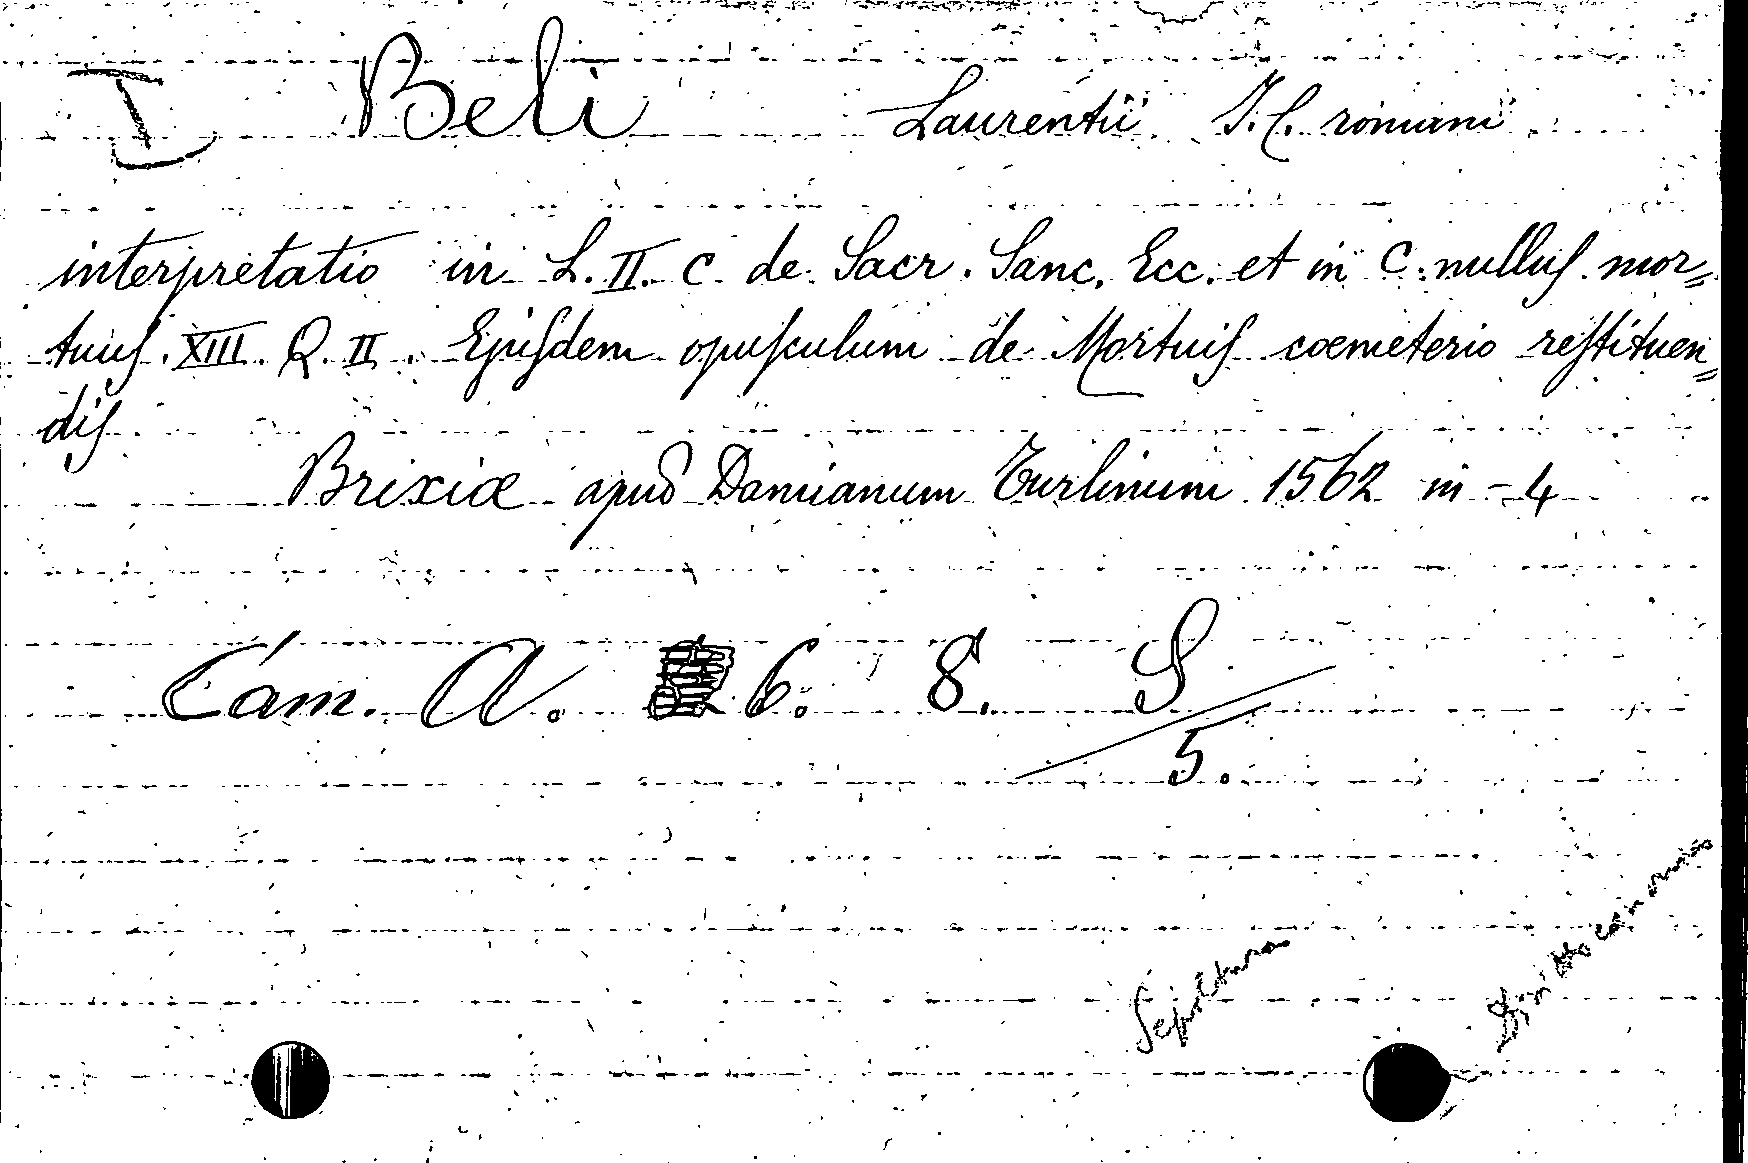 I Beli Laurentii J.C. romani
interpretatio in L. II. C. de Sacr. Sanc. Ecc. et in C. nulluſ mor=
tuuſ. XIII. Q. II. Ejuſdem opuſculum de Mortuiſ coemeterio reſtituen=
diſ
Brixiæ apud Damianum Turlinum 1562 in-4
Cam. A. 6. 8. S/5.
Sepoltura
Diritto canonico